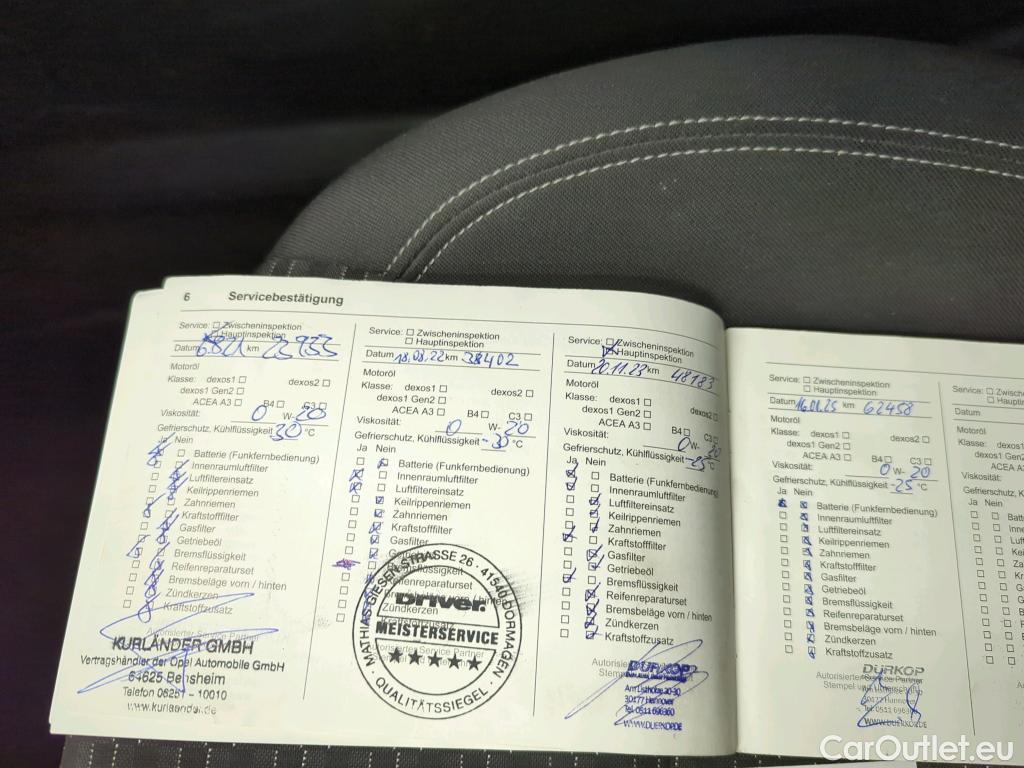 6 Servicebestätigung
Service: Zwischeninspektion
Hauptinspektion
Datum 6.8.21 km 23933
Motoröl
Klasse: dexos1 dexos2
dexos1 Gen2
ACEA A3 B4 C3
Viskosität: 0 W- 20
Gefrierschutz, Kühlflüssigkeit 30 °C
Ja Nein
Batterie (Funkfernbedienung)
Innenraumluftfilter
Luftfiltereinsatz
Keilrippenriemen
Zahnriemen
Kraftstofffilter
Gasfilter
Getriebeöl
Bremsflüssigkeit
Reifenreparaturset
Bremsbeläge vorn / hinten
Zündkerzen
Kraftstoffzusatz
Autorisierter Service Partner
KURLÄNDER GMBH
Vertragshändler der Opel Automobile GmbH
64625 Bensheim
Telefon 06251 - 10010
www.kurlaender.de
Service: Zwischeninspektion
Hauptinspektion
Datum 18.08.22 km 38402
Motoröl
Klasse: dexos1 dexos2
dexos1 Gen2
ACEA A3 B4 C3
Viskosität: 0 W- 20
Gefrierschutz, Kühlflüssigkeit -35 °C
Ja Nein
Batterie (Funkfernbedienung)
Innenraumluftfilter
Luftfiltereinsatz
Keilrippenriemen
Zahnriemen
Kraftstofffilter
Gasfilter
Getriebeöl
Bremsflüssigkeit
Reifenreparaturset
Zündkerzen
Kraftstoffzusatz
MATHIAS-GIESEN-STRASSE 26 · 41540 DORMAGEN
Driver.
MEISTERSERVICE
· QUALITÄTSSIEGEL ·
Service: Zwischeninspektion
Hauptinspektion
Datum 20.11.23 km 48183
Motoröl
Klasse: dexos1 dexos2
dexos1 Gen2
ACEA A3 B4 C3
Viskosität: 0 W- 20
Gefrierschutz, Kühlflüssigkeit -25 °C
Ja Nein
Batterie (Funkfernbedienung)
Innenraumluftfilter
Luftfiltereinsatz
Keilrippenriemen
Zahnriemen
Kraftstofffilter
Gasfilter
Getriebeöl
Bremsflüssigkeit
Reifenreparaturset
Bremsbeläge vorn / hinten
Zündkerzen
Kraftstoffzusatz
Autorisierter
DÜRKOP
Am Listholze
30177 Hannover
WWW.DUERKOP.DE
Service: Zwischeninspektion
Hauptinspektion
Datum 16.01.25 km 62458
Motoröl
Klasse: dexos1 dexos2
dexos1 Gen2
ACEA A3 B4 C3
Viskosität: 0 W- 20
Gefrierschutz, Kühlflüssigkeit -25 °C
Ja Nein
Batterie (Funkfernbedienung)
Innenraumluftfilter
Luftfiltereinsatz
Keilrippenriemen
Zahnriemen
Kraftstofffilter
Gasfilter
Getriebeöl
Bremsflüssigkeit
Reifenreparaturset
Bremsbeläge vorn / hinten
Zündkerzen
Kraftstoffzusatz
DÜRKOP
Autorisierter Service Partner
Stempel
30177 Hannover
WWW.DUERKOP.DE
Service:
Datum
Motoröl
Klasse: dexos1
dexos1 Gen2
ACEA A3
Viskosität:
Gefrierschutz, Kühlflüssi
Ja Nein
Batterie (Fu
Innenraumlu
Luftfilterein
Keilrippenri
Zahnrieme
Kraftstofff
Gasfilter
Getriebeö
Bremsflü
Reifenre
Bremsb
Zündke
Krafts
Autorisie
Stempe
CarOutlet.eu